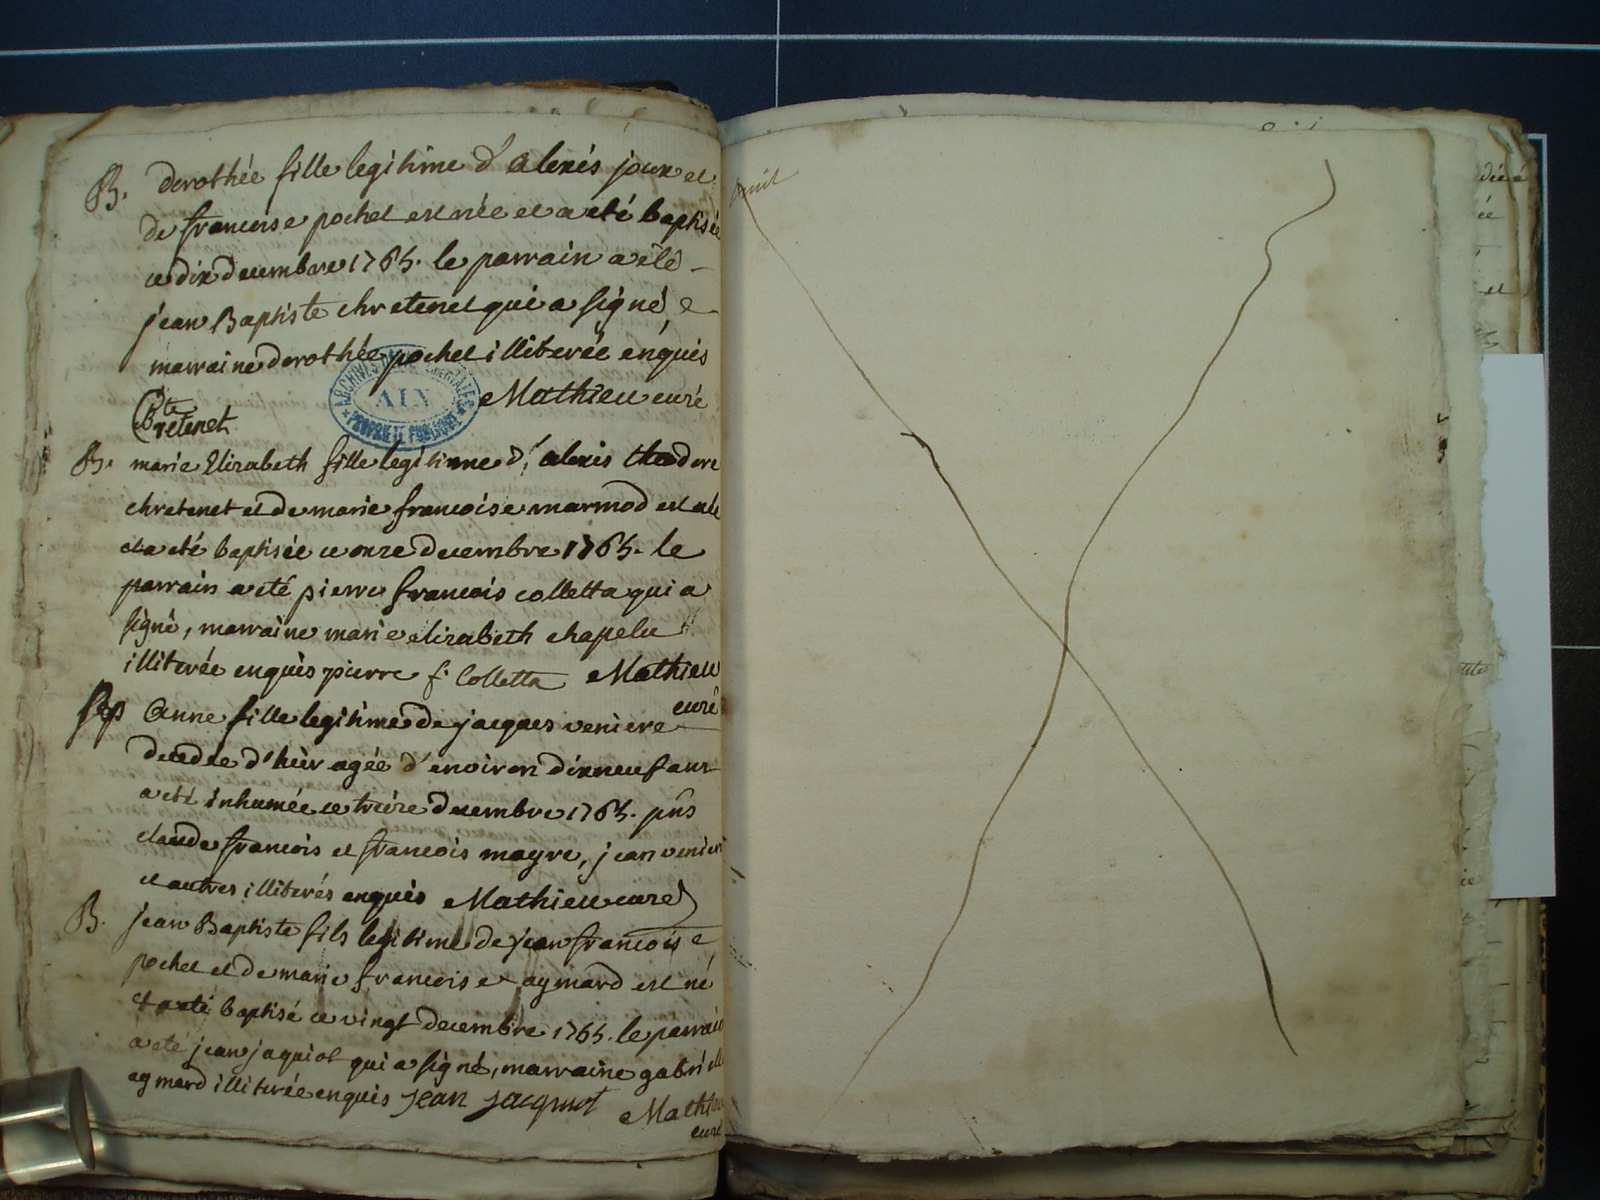 B. dorothée fille legitime d'alexis joux et
de francoise pochet est née et a eté baptisée
ce dix decembre 1765. le parrain a eté
jean Baptiste chretenet qui a signé, e
marraine dorothée pochet illiterée enquis
Mathieu curé
ARCHIVES
AIN
PROPRIÉTÉ PUBLIQUE
Bte
Cretenet
B. marie Elizabeth fille legitime d'alexis theodore
chretenet et de marie francoise marmod est née
et a eté baptisée ce onze decembre 1765. le
parrain a eté pierre francois colletta qui a
signé, marraine marie elizabeth chapelu
illiterée enquis pierre f. Colletta Mathieu
curé
Sep Anne fille legitime de jacques veniere
decedée d'hier agée d'environ dixneuf ans
a eté inhumée ce treize decembre 1765. pns
claude francois et francois mayre, jean
et autres illiterés enquis Mathieu curé
B. jean Baptiste fils legitime de jean francois
pochet et de marie francoise aymard est né
et a eté baptisé ce vingt decembre 1765. le parrain
a eté jean jaquiot qui a signé, marraine gabrielle
aymard illiterée enquis jean jacquiot Mathieu
curé